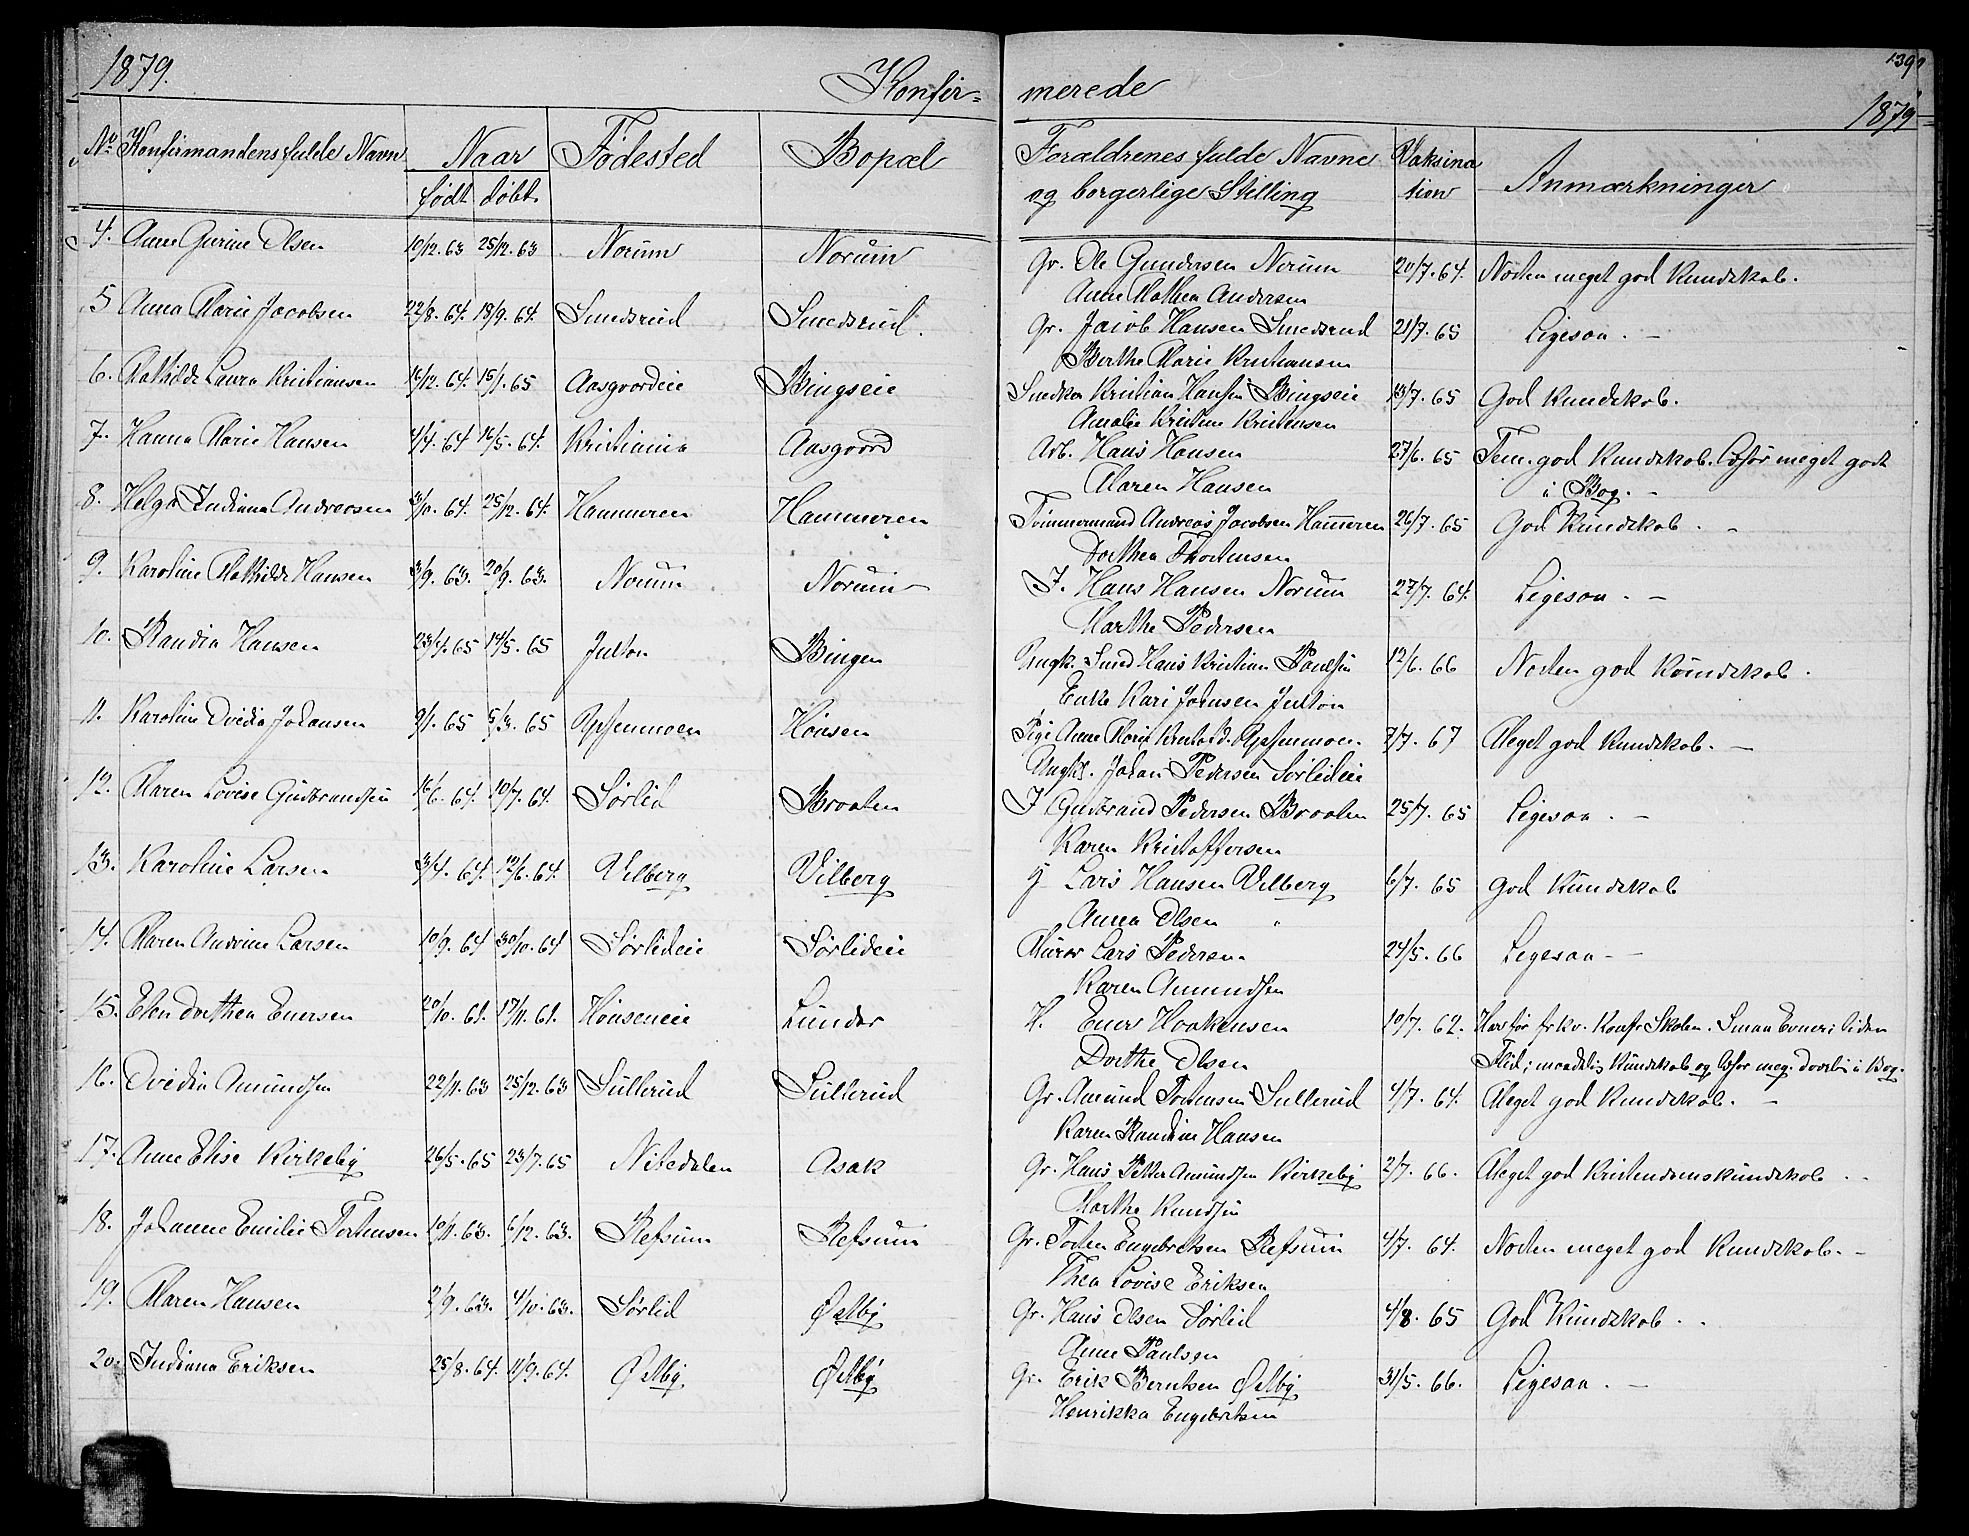 1879. Konfir= merede 139
1879
No Konfirmandens fulde Navn Naar Fødested Bopæl Forældrenes fulde Navne Vaksina
født døbt og borgerlige Stilling tion Anmærkninger
4. Anne Gurine Olsen 10/12.63 25/12.63 Norum Norum Gr. Ole Gundersen Norum 20/7.64. Næsten meget god Kundskab.
Anne Mathea Andersen
5 Anna Marie Jacobsen 22/8.64. 18/9.64. Smedsrud Smedsrud. Gr. Jacob Hansen Smedsrud 21/7.65 Ligesaa. —
Berthe Marie Kristiansen
6. Mathilde Laura Kristiansen 16/12.64. 15/1.65 Aasgaardeie Bingseie Snedker Kristian Hansen Bingseie 13/7.65 God Kundskab.
Amalie Kristine Kristensen
7. Hanna Marie Hansen 4/4.64 16/5.64. Kristiania Aasgaard Arb. Hans Hansen 27/6.65 Tem. god Kundskab. Læser meget godt
Maren Hansen i Bog. —
8. Helga Indiana Andreasen 3/10.64. 25/12.64. Hammeren Hammeren Tømmermand Andreas Jacobsen Hammeren 26/7.65 God Kundskab. —
Dorthea Thorstensen
9. Karoline Mathilde Hansen 3/9.63. 20/9.63. Norum Norum I. Hans Hansen Norum 22/7.64. Ligesaa. —
Marthe Pedersen
10. Randia Hansen 23/4.65 14/5.65 Julton Bingen Ungk. Smed Hans Kristian Paulsen 12/6.66 Næsten god Kundskab.
Enke Kari Johnsen Julton
11. Karoline Ovidia Johansen 9/1.65 5/3.65 Hønsen Pige Anne Marie 7/7.67 Meget god Kundskab. —
Ungk. Johan Pedersen Sørlideie
12. Maren Lovise Gudbrandsen 16/6.64. 10/7.64. Sørlid Braaten I Gudbrand Pedersen Braaten 25/7.65 Ligesaa. —
Karen Kristoffersen
13. Karoline Larsen 3/4.64. 12/6.64. Vilberg Vilberg Lars Hansen Vilberg 6/7.65 God Kundskab
Anna Olsen "
14. Maren Andrine Larsen 10/9.64 30/10.64 Sørlideie Sørlideie Murer Lars Pedersen 24/5.66 Ligesaa —
Karen Amundsen
15. Elen Dorthea Evensen 2/10.61. 17/11.61. Hønseneie Lunder H. Even Haakensen 19/7.62. Har før frkv. Konf. Skolen. Smaa Evner; liden
Dorthe Olsen Flid; maadelig Kundskab og læser meg. daarlig i Bog.
16. Ovidia Amundsen 22/11.63 25/12.63 Sullerud Sullerud Gr. Amund Torstensen Sullerud 4/7.64. Meget god Kundskab. —
Karen Randine Hansen
17. Anne Elise Kirkeby 26/5.65 23/7.65 Nitedalen Asak Gr. Hans Petter Amundsen Kirkeby 2/7.66. Meget god Kristendomskundskab
Marthe Knudsen
18. Johanne Emilie Torstensen 10/11.63. 6/12.63. Refsum Refsum Gr. Torsten Engebretsen Refsum 4/7.64. Næsten meget god Kundskab. —
Thea Lovise Eriksen
19. Maren Hansen 2/9.63. 4/10.63. Sørlid Østby Gr. Hans Olsen Sørlid 4/8.65 God Kundskab.
Anne Paulsen
20. Indiana Eriksen 25/8.64. 11/9.64. Østby Østby Gr. Erik Berntsen Østby 31/5.66. Ligesaa. —
Henrikka Engebretsen